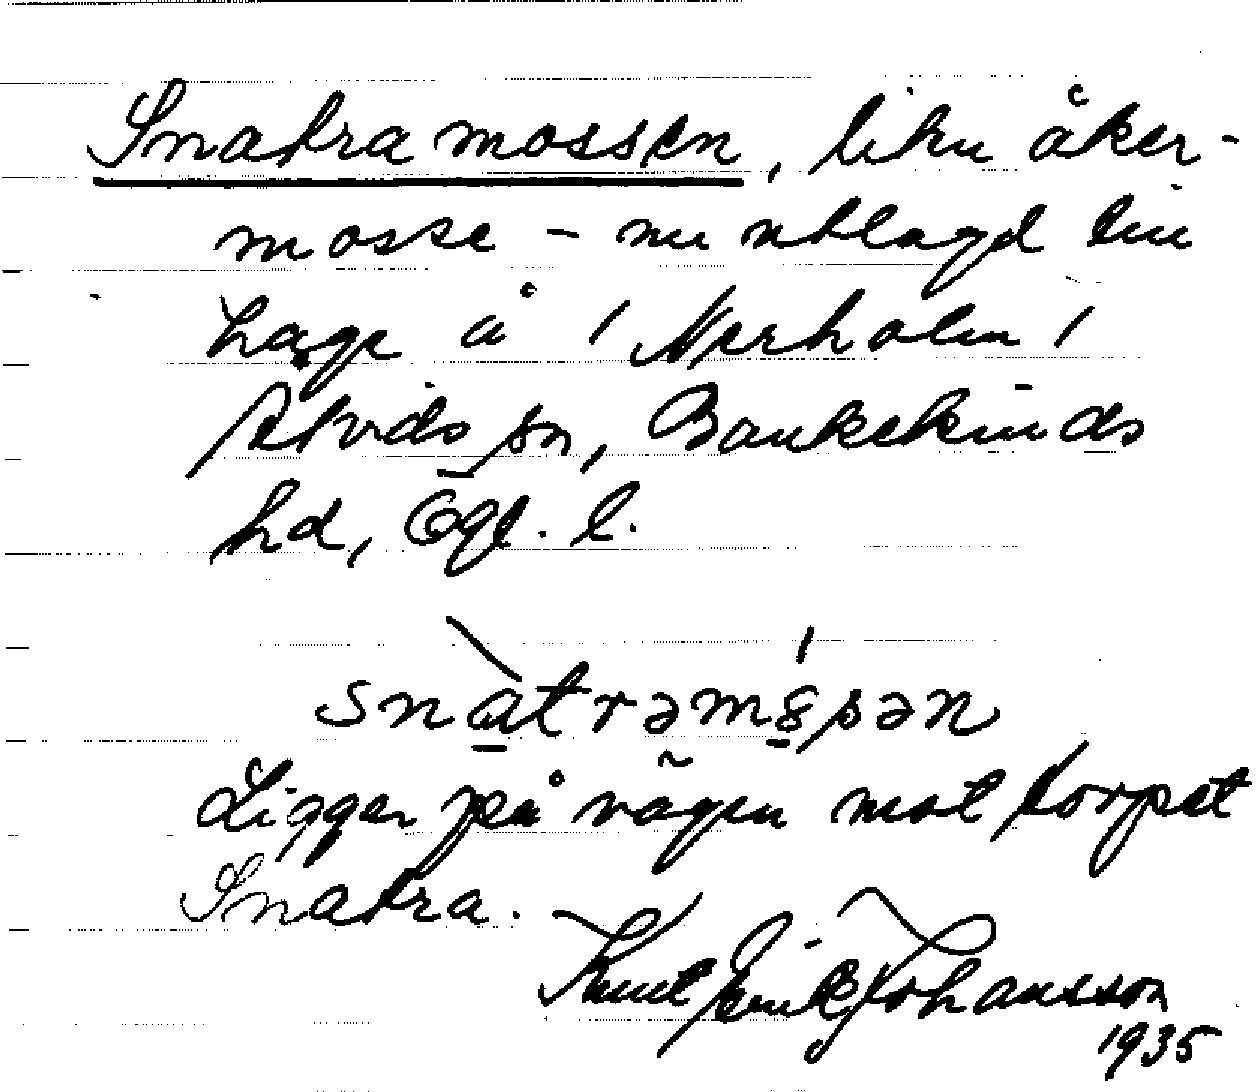 Snatramossen, liten åker-
mosse - nu utlagd till
hage å / Nerholm /
Atvids sn, Bankekinds
hd, Ögl. l.
snàtrəmósən
Ligger på vägen mot torpet
Snatra.
Knut Erik Johansson
1935